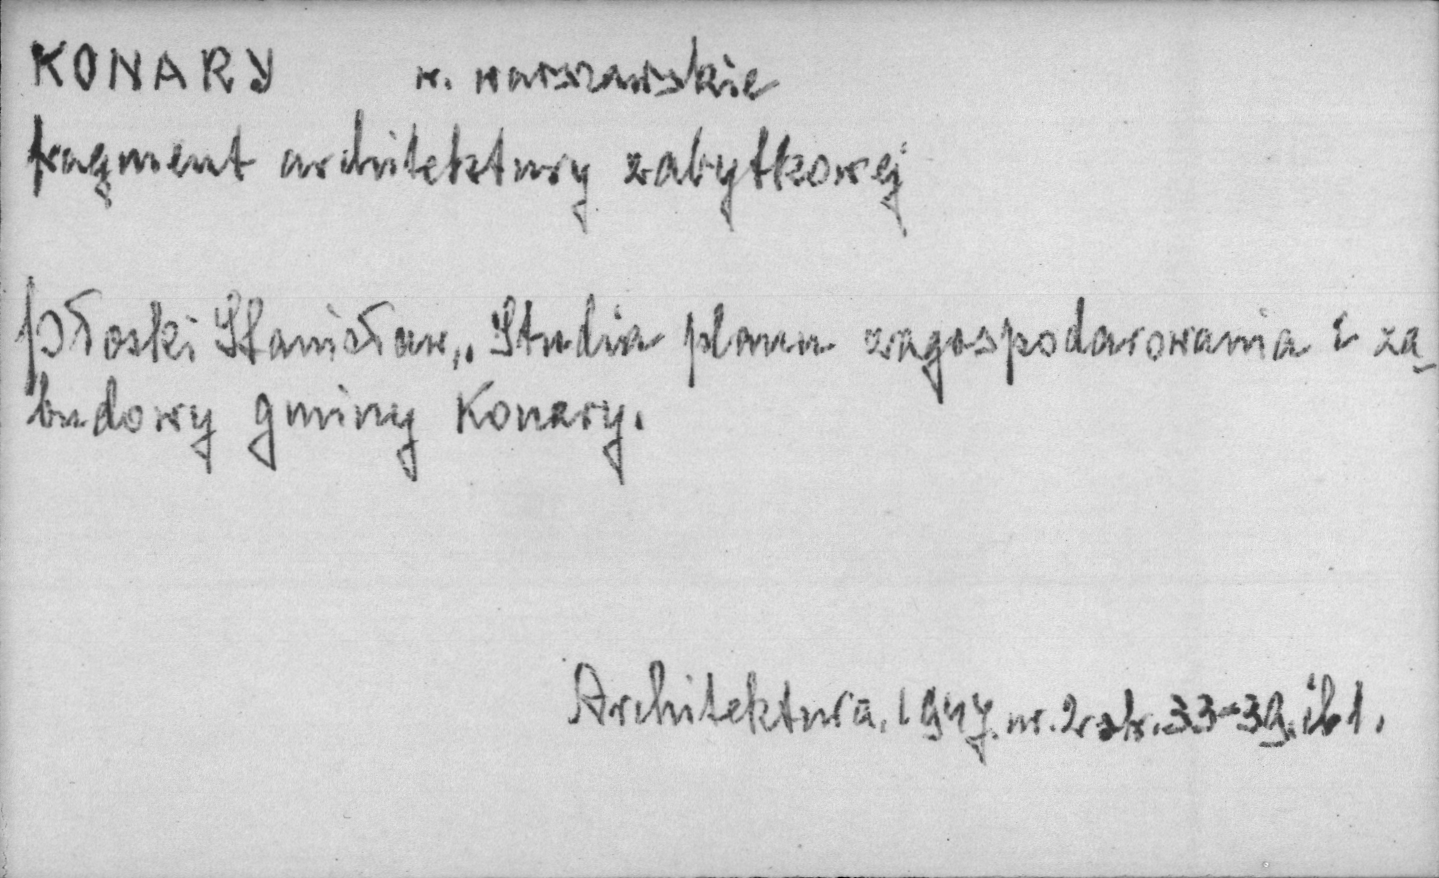 KONARY w. warszawskie
fragment architektury zabytkowej
Płoski Stanisław,. Studia planu zagospodarowania i za-
budowy gminy Konary.
Architektura. 1947. nr. 2 str. 33-39. il. 1.